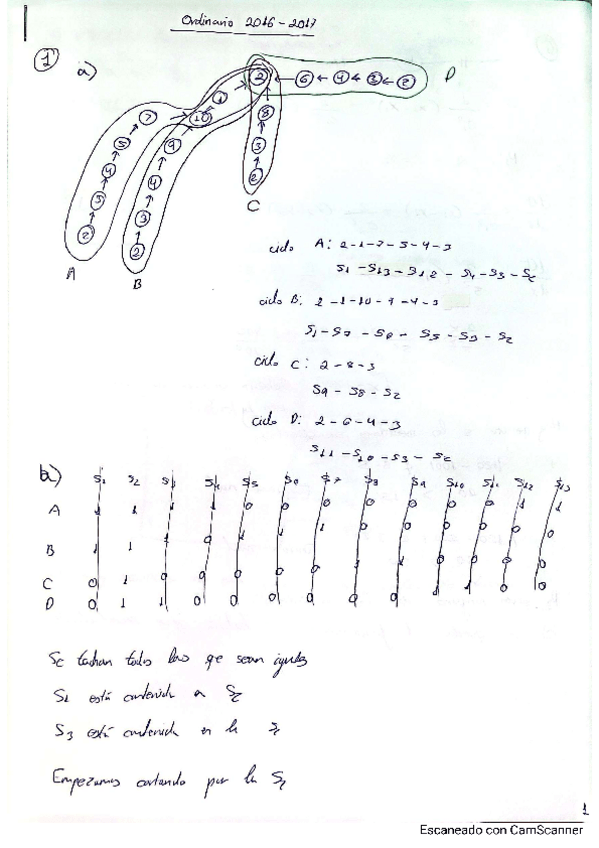 Ordinario 2016-2017
1
a)
2 6 4 3 2
D
7 10 1
5 9 8
4 4 3
3 2
2 2
C
A B
ciclo A: 2-1-7-5-4-3
S1 - S13 - S12 - S4 - S3 - S2
ciclo B: 2-1-10-9-4-3
S1 - S7 - S6 - S5 - S3 - S2
ciclo C: 2-8-3
S9 - S8 - S2
ciclo D: 2-6-4-3
S11 - S10 - S3 - S2
b) S1 S2 S3 S4 S5 S6 S7 S8 S9 S10 S11 S12 S13
A 1 1 1 1 0 0 0 0 0 0 0 1 1
B 1 1 1 0 1 1 1 0 0 0 0 0 0
C 0 1 0 0 0 0 0 1 1 0 0 0 0
D 0 1 1 0 0 0 0 0 0 1 1 0 0
Se tachan todos los que sean iguales
S1 está contenida a S2
S3 está contenida en la S2
Empezamos cortando por la S2
1
Escaneado con CamScanner